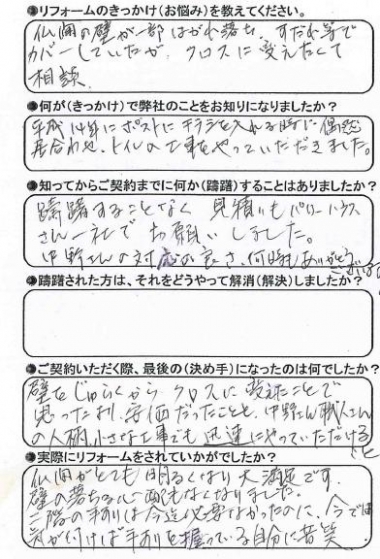 ●リフォームのきっかけ(お悩み)を教えてください。
仏間の壁が一部はがれ落ち、すだれ等で
カバーしていたが、クロスに変えたくて
相談。
●何が(きっかけ)で弊社のことをお知りになりましたか?
平成14年にポストにチラシを入れる時に偶然
居合わせ、トイレの工事をやっていただきました。
●知ってからご契約までに何か(躊躇)することはありましたか?
躊躇することなく 見積りもバリーハウス
さん一社でお願いしました。
中野さんの対応の良さ、何時もありがとう
ございます
●躊躇された方は、それをどうやって解消(解決)しましたか?
●ご契約いただく際、最後の(決め手)になったのは何でしたか?
壁をじゅらくから クロスに変えたことで
思ったより、安価だったことと、中野さん職人さん
の人柄、小さな工事でも迅速にやっていただける
こと
●実際にリフォームをされていかがでしたか?
仏間がとても明るくなり大満足です。
壁の落ちる心配もなくなりました。
二階の手すりは今迄必要なかったのに、今では
気が付けば手すりを握っている自分に苦笑。